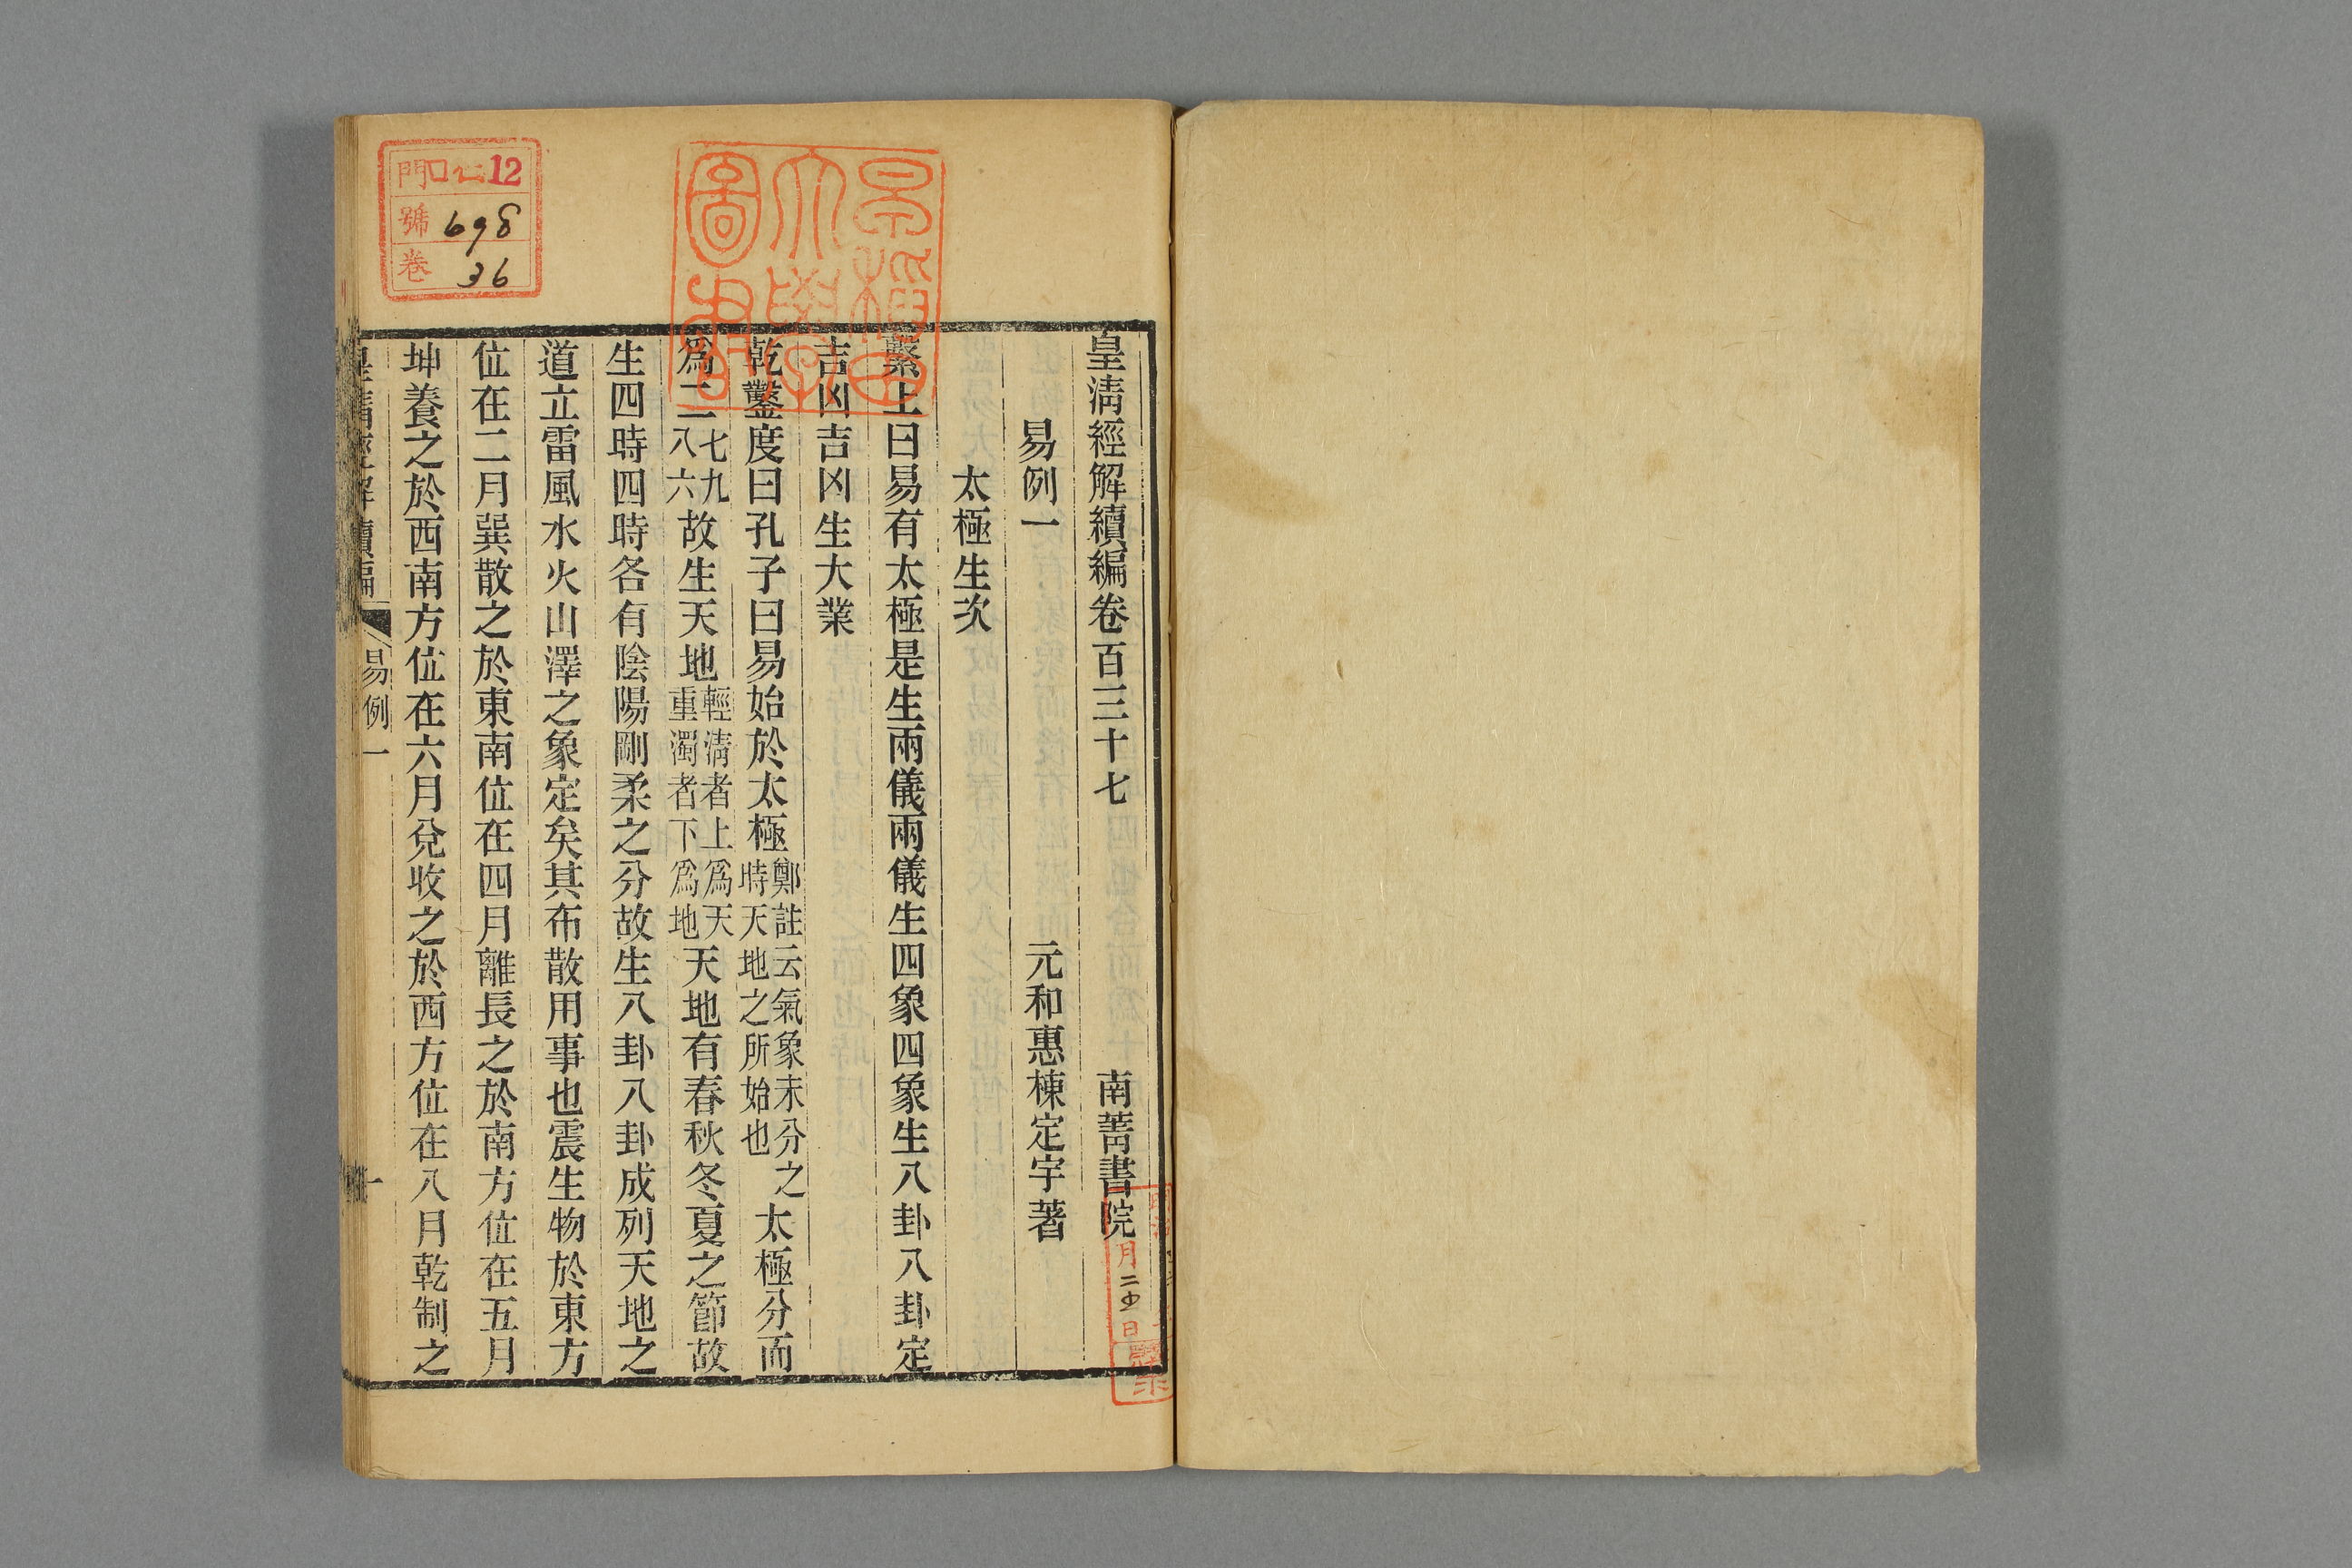 皇清經解續編卷百三十七　南菁書院
易例一　元和惠棟定宇著
太極生次
繫上曰易有太極是生兩儀兩儀生四象四象生八卦八卦定
吉凶吉凶生大業
乾鑿度曰孔子曰易始於太極鄭註云氣象未分之時天地之所始也太極分而
爲二七九八六故生天地輕淸者上爲天重濁者下爲地天地有春秋冬夏之節故
生四時四時各有陰陽剛柔之分故生八卦八卦成列天地之
道立雷風水火山澤之象定矣其布散用事也震生物於東方
位在二月巽散之於東南位在四月離長之於南方位在五月
坤養之於西南方位在六月兌收之於西方位在八月乾制之
皇清經解續編　易例一　一
門 口仁12
號 698
卷 36
早稻田大學圖書
月二 日